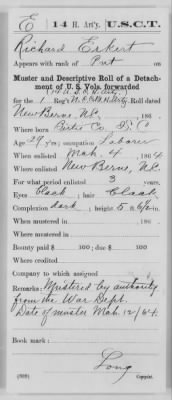 E | 14 H. Art'y. | U.S.C.T.
Richard Eskert
Appears with rank of Pvt on
Muster and Descriptive Roll of a Detach-
ment of U. S. Vols. forwarded
(14 U.S.C.H. Arty.)
for the 1 Reg't N.C. Col. H. Arty. Roll dated
New Berne N.C. , 186 .
Where born Bertie Co. N.C.
Age 29 y'rs; occupation Laborer
When enlisted Mch. 4 , 1864
Where enlisted New Berne, N.C.
For what period enlisted 3 years.
Eyes Black ; hair Black
Complexion dark ; height 5 ft. in.
When mustered in , 186 .
Where mustered in
Bounty paid $ 100; due $ 100
Where credited
Company to which assigned
Remarks: Mustered by authority
from the War Dept.
Date of muster Mch. 12/64.
Book mark:
Long
(339) Copyist.